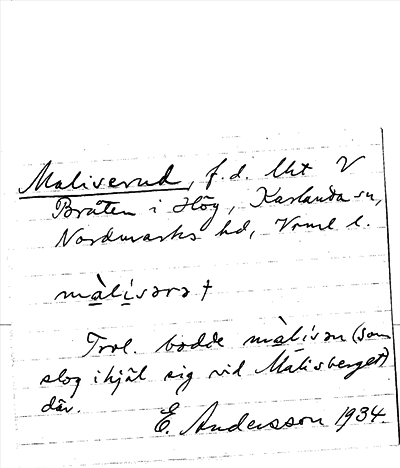 Maliserud, f.d. lht V
Bråten i Hög, Karlanda sn,
Nordmarks hd, Vrml l.
màlisərə †
Trol. bodde màlisən (som
slog ihjäl sig vid Målisberget)
där.
E. Andersson 1934.